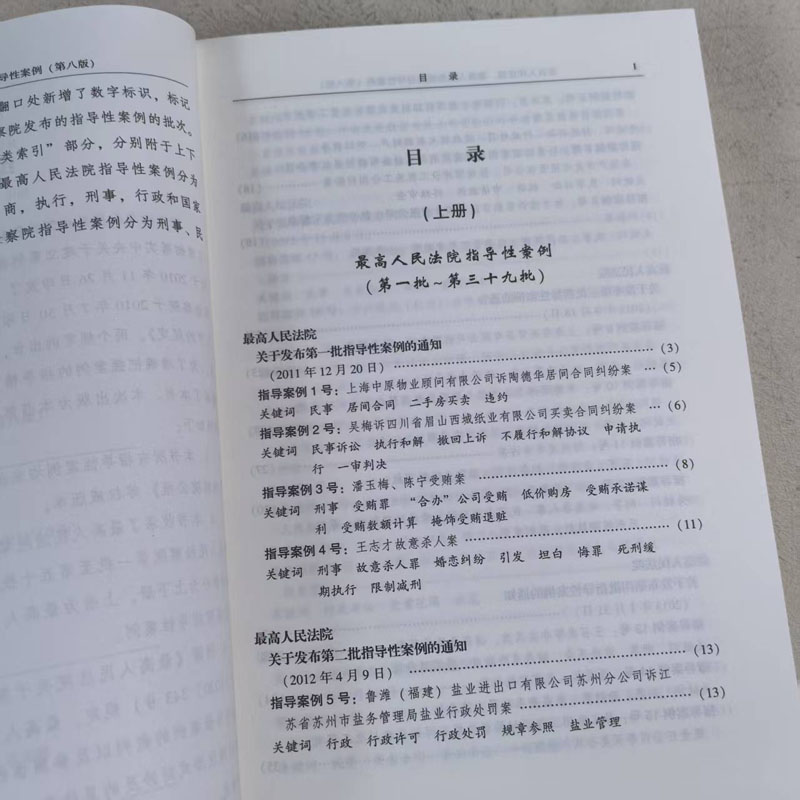 导性案例（第八版）
翻口处新增了数字标识，标记
察院发布的指导性案例的批次。
类索引”部分，分别附于上下
最高人民法院指导性案例分为
商，执行，刑事，行政和国家
察院指导性案例分为刑事、民
目 录 1
目 录
（上册）
最高人民法院指导性案例
（第一批～第三十九批）
最高人民法院
关于发布第一批指导性案例的通知
（2011年12月20日）……（3）
指导案例1号：上海中原物业顾问有限公司诉陶德华居间合同纠纷案…（5）
关键词 民事 居间合同 二手房买卖 违约
指导案例2号：吴梅诉四川省眉山西城纸业有限公司买卖合同纠纷案…（6）
关键词 民事诉讼 执行和解 撤回上诉 不履行和解协议 申请执
行 一审判决
指导案例3号：潘玉梅、陈宁受贿案……（8）
关键词 刑事 受贿罪 “合办”公司受贿 低价购房 受贿承诺谋
利 受贿数额计算 掩饰受贿退赃
指导案例4号：王志才故意杀人案……（11）
关键词 刑事 故意杀人罪 婚恋纠纷 引发 坦白 悔罪 死刑缓
期执行 限制减刑
最高人民法院
关于发布第二批指导性案例的通知
（2012年4月9日）……（13）
指导案例5号：鲁潍（福建）盐业进出口有限公司苏州分公司诉江
苏省苏州市盐务管理局盐业行政处罚案……（13）
关键词 行政 行政许可 行政处罚 规章参照 盐业管理